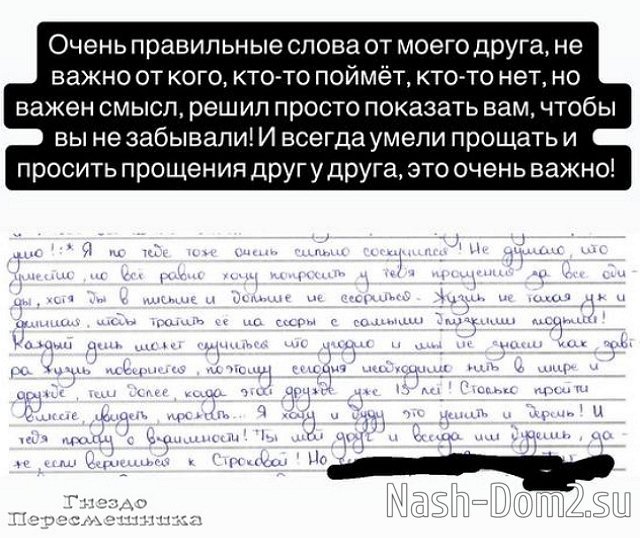 Очень правильные слова от моего друга, не
важно от кого, кто-то поймёт, кто-то нет, но
важен смысл, решил просто показать вам, чтобы
вы не забывали! И всегда умели прощать и
просить прощения друг у друга, это очень важно!
Я по тебе тоже очень сильно соскучился! Не думаю, что
уместно, но всё равно хочу попросить у тебя прощения за все оби-
ды, хотя бы в письме и больше не ссориться. Жизнь не такая уж и
длинная, чтобы тратить её на ссоры с самыми близкими людьми!
Каждый день может случиться что угодно и мы не знаем как завт
ра жизнь повернется, поэтому сегодня необходимо жить в мире и
дружбе, тем более, когда этой дружбе уже 15 лет! Столько пройти
вместе, увидеть, прожить... Я хочу и буду это ценить и беречь! И
тебя прошу о взаимности! Ты мой друг и всегда им будешь, да-
же, если вернешься к Строковой! Но
Гнездо
Пересмешника
Nash-Dom2.su